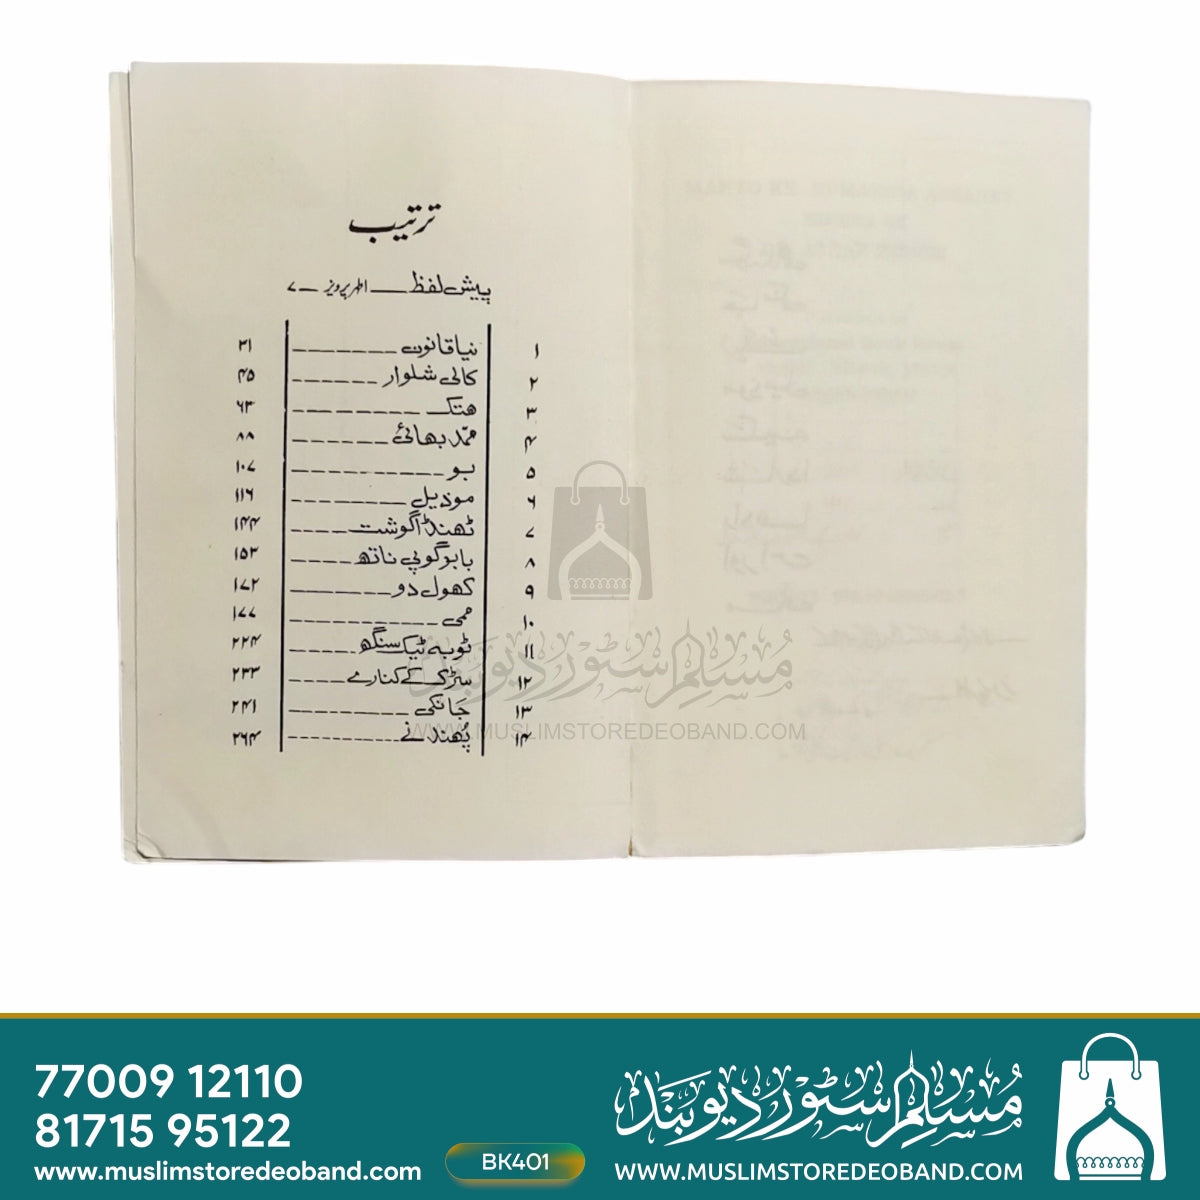 ترتیب
پیش لفظ — اطہر پرویز — ۷
۱ نیا قانون ۳۱
۲ کالی شلوار ۴۵
۳ ھتک ۶۳
۴ ممّد بھائی ۸۸
۵ بو ۱۰۷
۶ موذیل ۱۱۶
۷ ٹھنڈا گوشت ۱۴۴
۸ بابو گوپی ناتھ ۱۵۳
۹ کھول دو ۱۷۲
۱۰ ممی ۱۷۷
۱۱ ٹوبہ ٹیک سنگھ ۲۲۴
۱۲ سڑک کے کنارے ۲۳۳
۱۳ جانکی ۲۴۱
۱۴ پُھندنے ۲۶۴
مسلم سٹور دیوبند
WWW.MUSLIMSTOREDEOBAND.COM
77009 12110
81715 95122
www.muslimstoredeoband.com
BK401
مسلم سٹور دیوبند
WWW.MUSLIMSTOREDEOBAND.COM